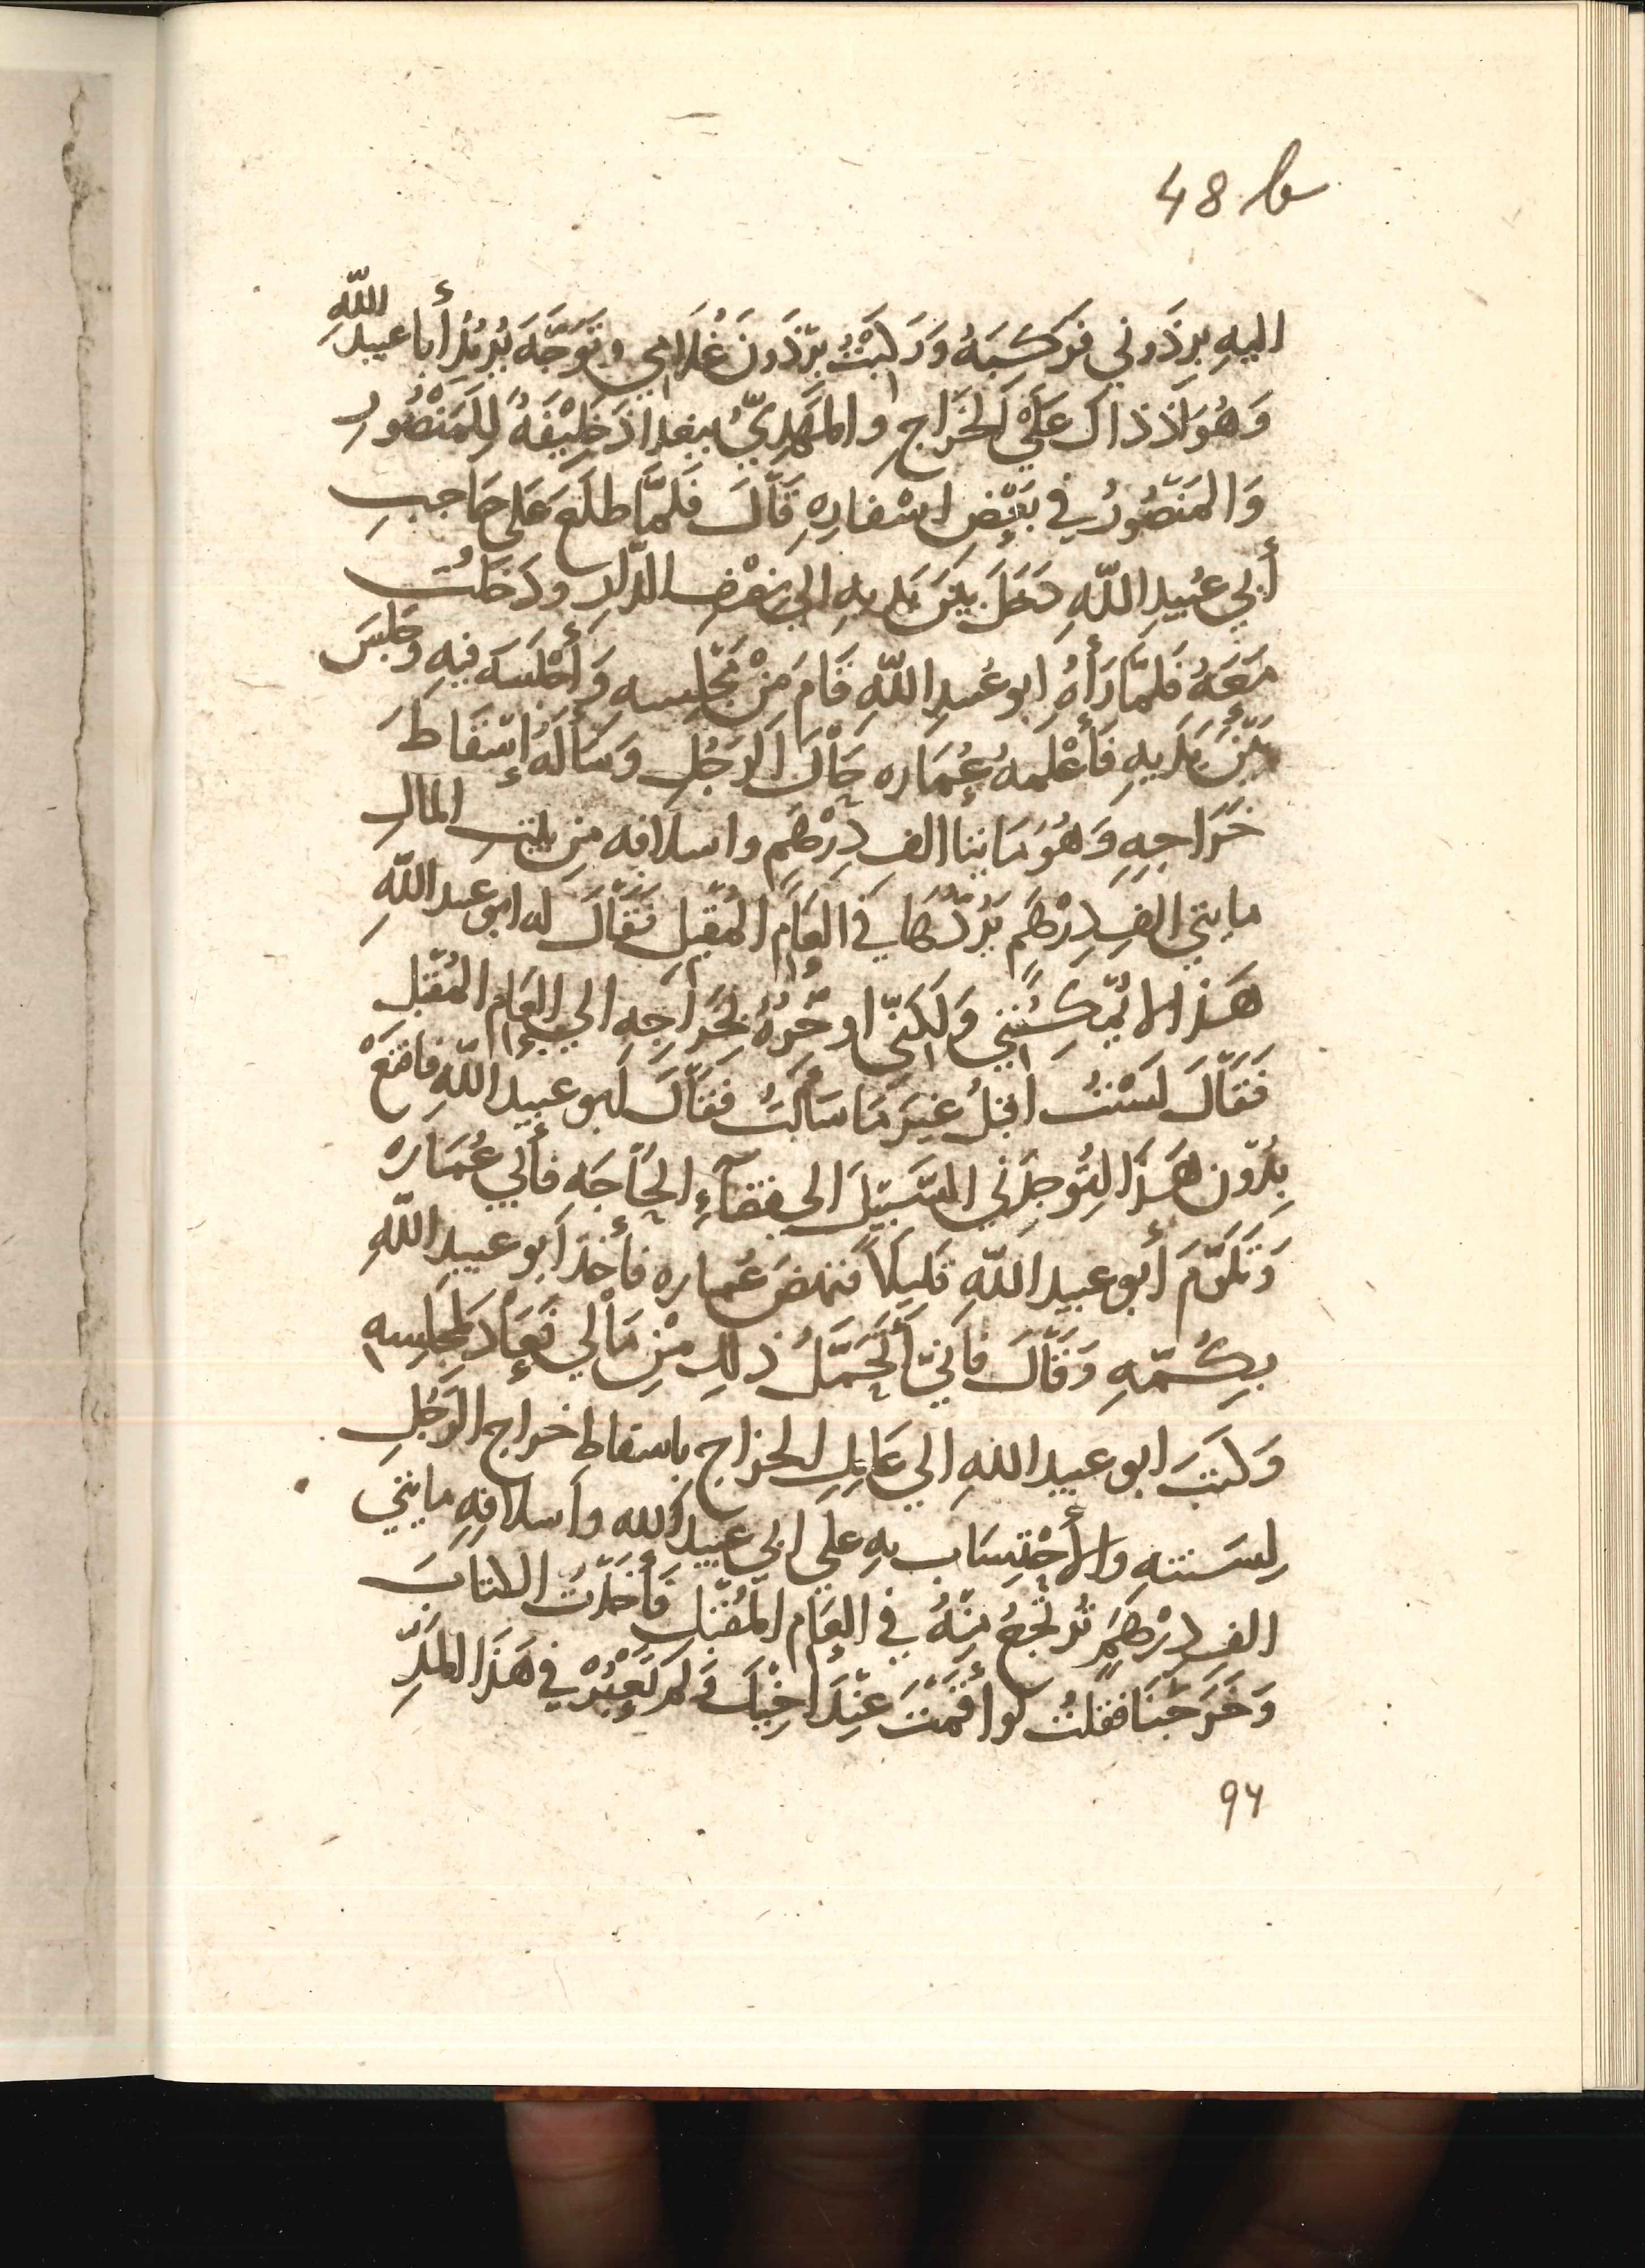 48 b
اليهِ برذَوني فَركِبَهُ وَرَكِبْتُ بِرْذَونَ غُلَامِي وتَوَجَّهَ يُرِيْدُ أبا عبيدِ اللّهِ
وَهُوَ اذ ذاك عَلَيْ الخَرَاجِ والمَهْدِيُّ ببغداذ خَلِيْفَةً لِلمَنْصُورِ
وَالمَنْصُورُ في بَعْضِ اسْفارِهِ قَالَ فَلمَّا طلَعَ عَلى حَاجِبِ
أبي عُبَيدِ اللّهِ دَخَلَ بَيْنَ يَدَيهِ الي بعْضِ الدَّارِ ودَخَلْتُ
مَعَهُ فَلمّا رَأهُ ابو عُبيدِ اللّهِ قَامَ مِنْ مَجْلِسه وَأجْلَسَه فيهِ وجَلسَ
بَيْنَ يَدَيهِ فَأعْلمهُ عُمَاره حَالَ الرَجُلِ وَسَألَهُ إسْقَاطَ
خَرَاجِهِ وَهُوَ مَايتا الف دِرْهَمٍ واسلافه مِن بَيْتِ المالِ
مايتي الفِ دِرْهَمٍ يَرُدُّهَا في العَامِ المُقْبِلِ فَقَالَ له ابو عبد اللّهِ
هَذا لا يُمْكِنُنِي وَلَكِنّي اوخّرُهُ بخَرَاجِه الي العَامِ المُقْبِلِ
فَقَالَ لَسْتُ اقبَلُ غيرَ مَا سَألتُ فقَالَ ابو عبيد اللّهِ فاقنَعْ
بِدُون هَذَا لِتُوجِدَنِي السَّبِيْلَ الى قضآءِ الحَاجَه فأبي عُمَاره
وَتَلوّمَ أبو عبيد اللّهِ قَليلاً فنهضَ عُماره فأخذَ ابو عبيد اللّهِ
بِكُمّهِ وَقَالَ فَانِّي أتَحَمَّلُ ذلك مِنْ مَالِي فَعَادَ لمَجْلِسِهِ
وَكتَبَ ابو عبيد اللهِ الي عَامِل الخراج باسقاط خراج الرَجُلِ
لِسَنتهِ والأحْتِسَاب بهِ علي ابي عبيد الله واسلافِهِ مايتي
الف دِرْهَمٍ تُرتَجعُ مِنْهُ في العَام المُقْبل فَأخَذْتُ الكتابَ
وَخَرَجْنَا فقلتُ لَو أقَمْتَ عِنْدَ اخِيْكَ وَلَمْ تَعْبُرْ في هَذا المَدِّ
94